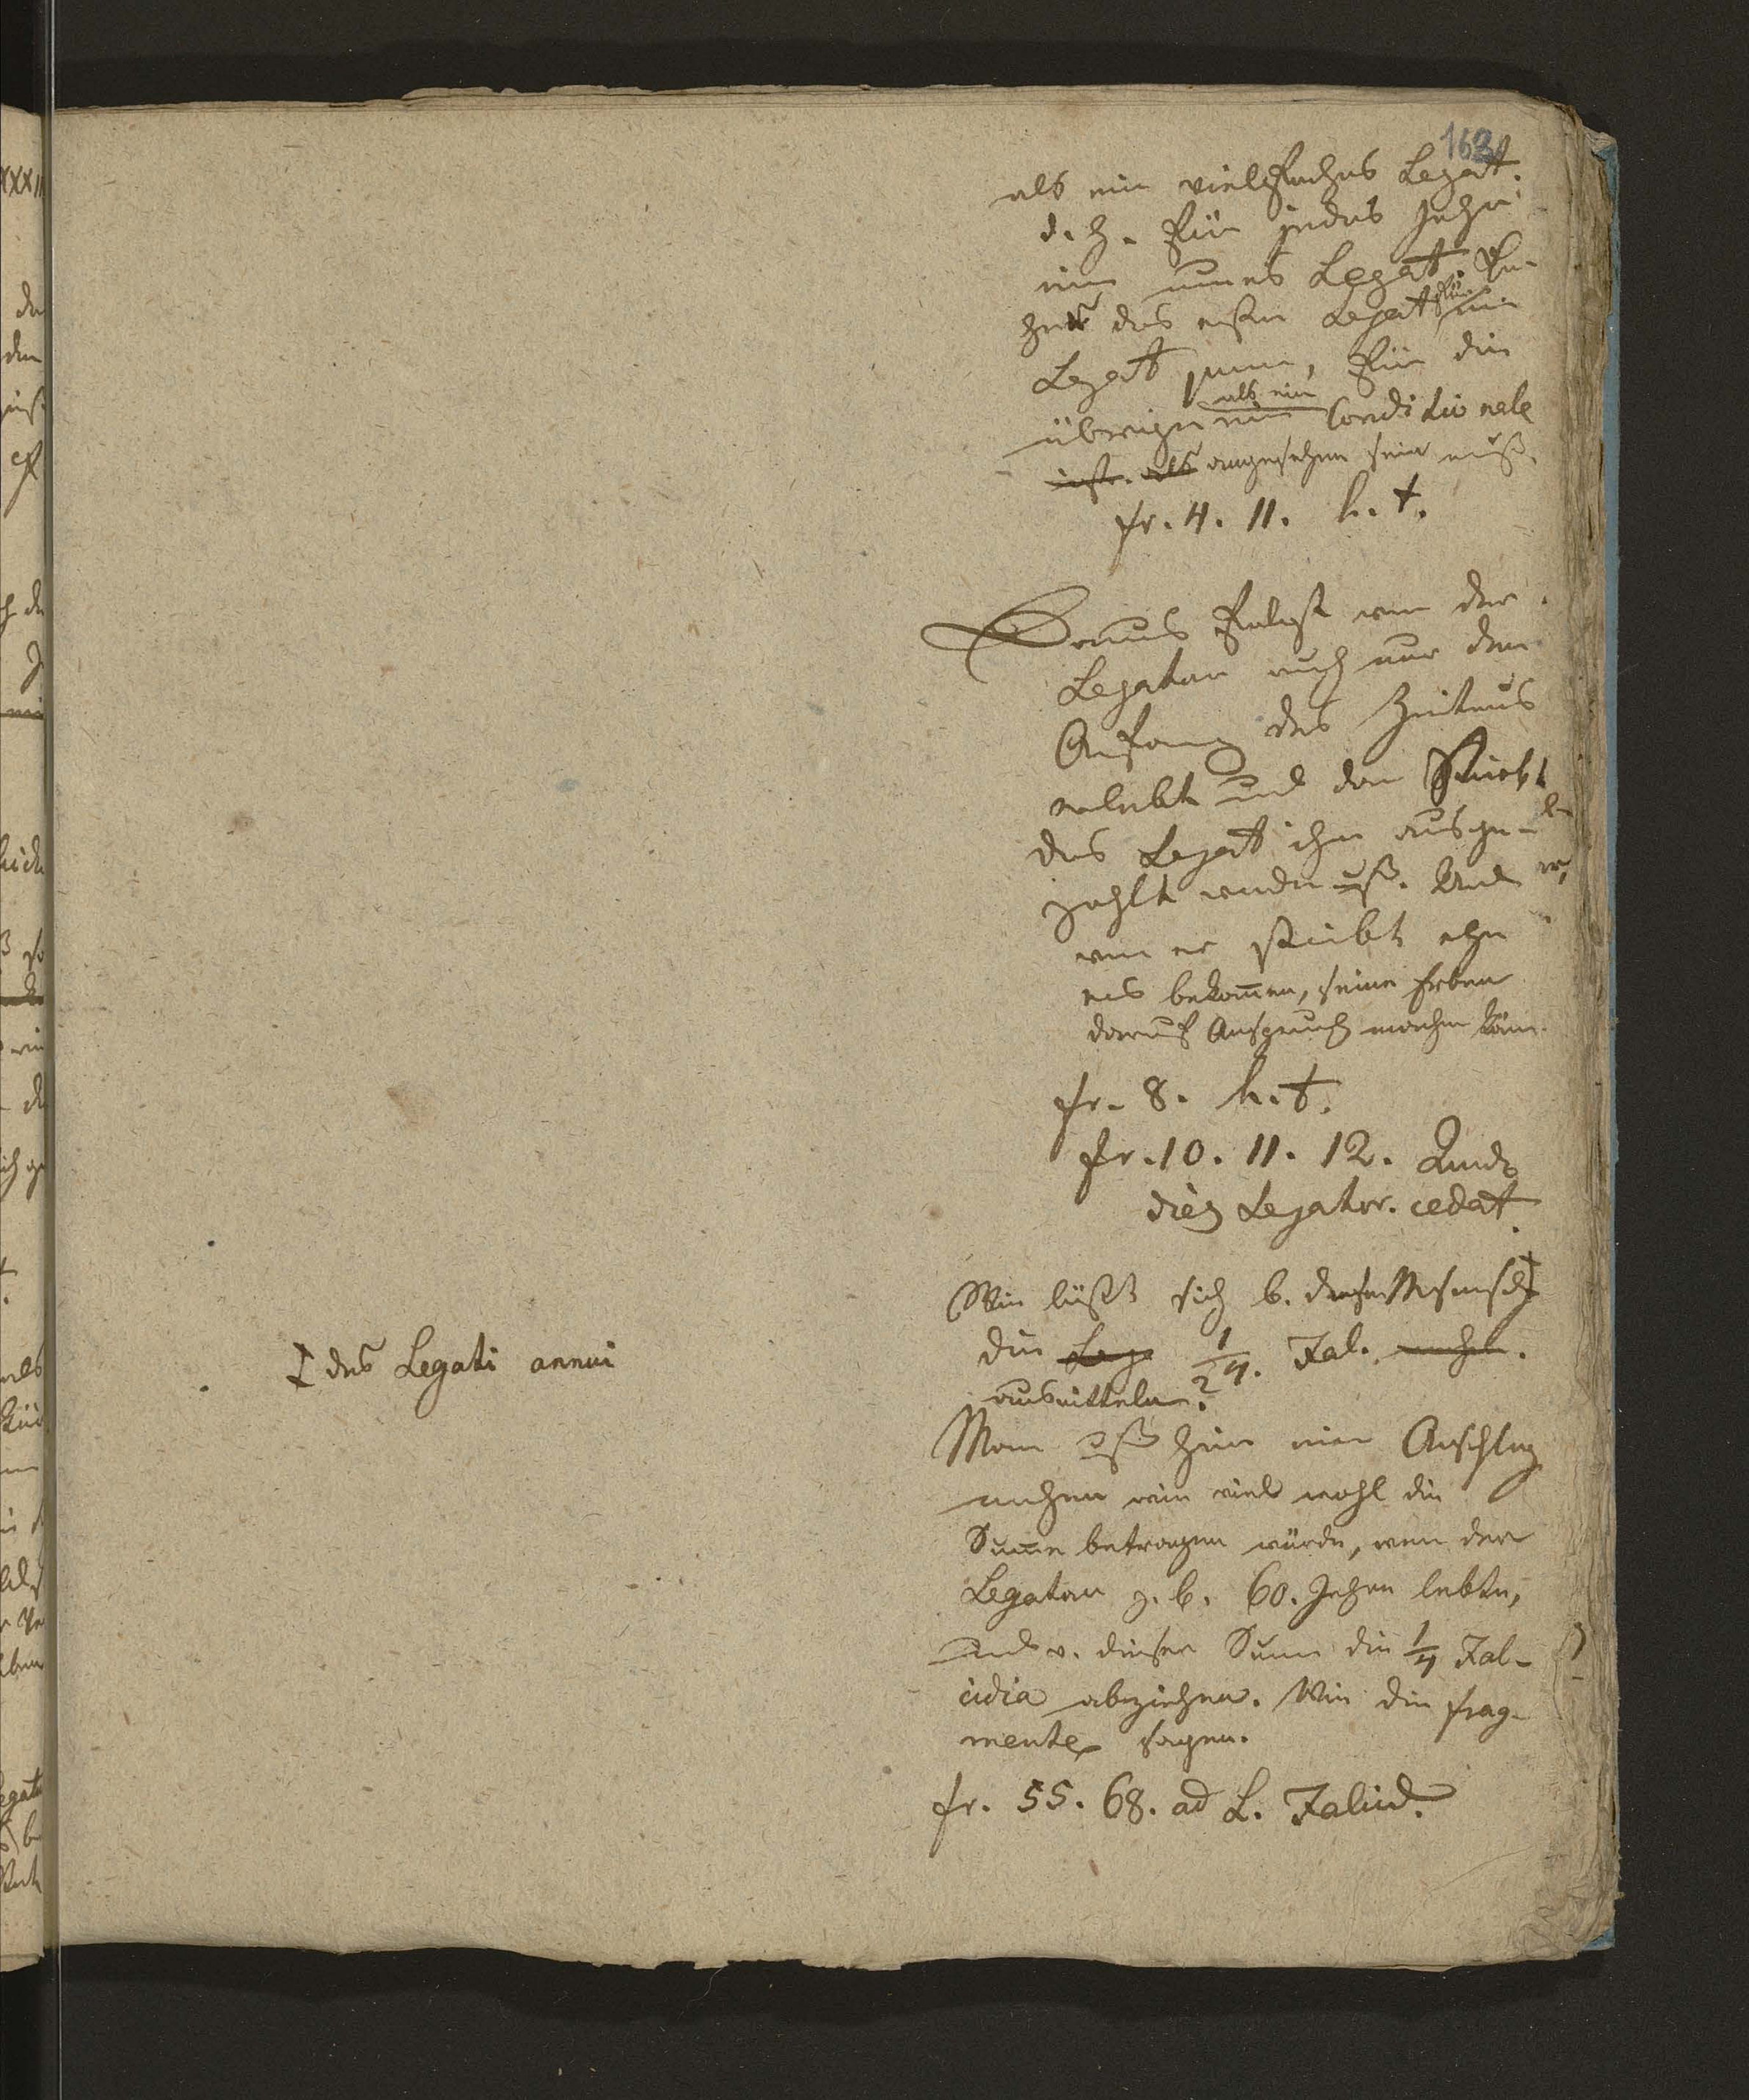 163
als ein vielfaches Legat.
d. h. für jedes Jahr
ein neues Legat.
das erste Legat für ein
Legat purum, für die
übrigen als ein Conditionale
ist als angesehen sein muß.
fr. 4. 11. h. t.
Daraus folgt wen der
Legatar auch nur den
Anfang des Zeitraums
erlebt und dan stirbt
das Legat ihm ausge-
zahlt werden muß. Und
wen er stirbt ehe
ers bekom̅en, seine Erben
darauf Anspruch machen könn.
fr. 8. h. t.
fr. 10. 11. 12. Quando
dies Legator. cedat.
Wie läßt sich b. dieser
die Lega 1/4. Fal. machen.
ausmitteln?
des Legati annui
Man muß hier einen Anschlag
machen wie viel wohl die
Sum̅e betragen würde, wen der
Legatar z. b. 60. Jahre lebte,
und v. dieser Sum̅e die 1/4 Fal-
cidia abziehen. Wie die frag-
mente sagen.
fr. 55. 68. ad L. Falcid.